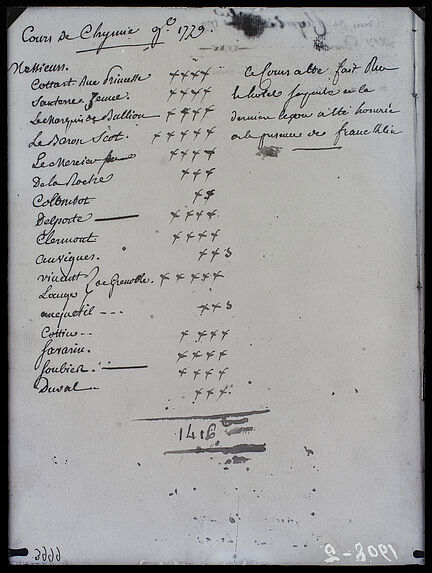 Cours de Chymie 9bre 1779.
Messieurs.
Cottart Rue Princesse ++++
Santerre Jeune. ++++
Le Marquis de Bullion ++++
Le Baron Scot. +++++
Le Mercier ++++
De la Roche +++
Colombot ++
Delporte — ++++
Clermont ++++
auvigues. ++3
vincent } de Grenoble. +++++
Lange
anquetil --- ++3
Cottin.. ++++
favarin. ++++
foubier. — ++++
Duval +++
1416
Ce Cours a été fait Rue
hotel et la
derniere leçon a été honorée
de la presence de francklin
6666
1908-2